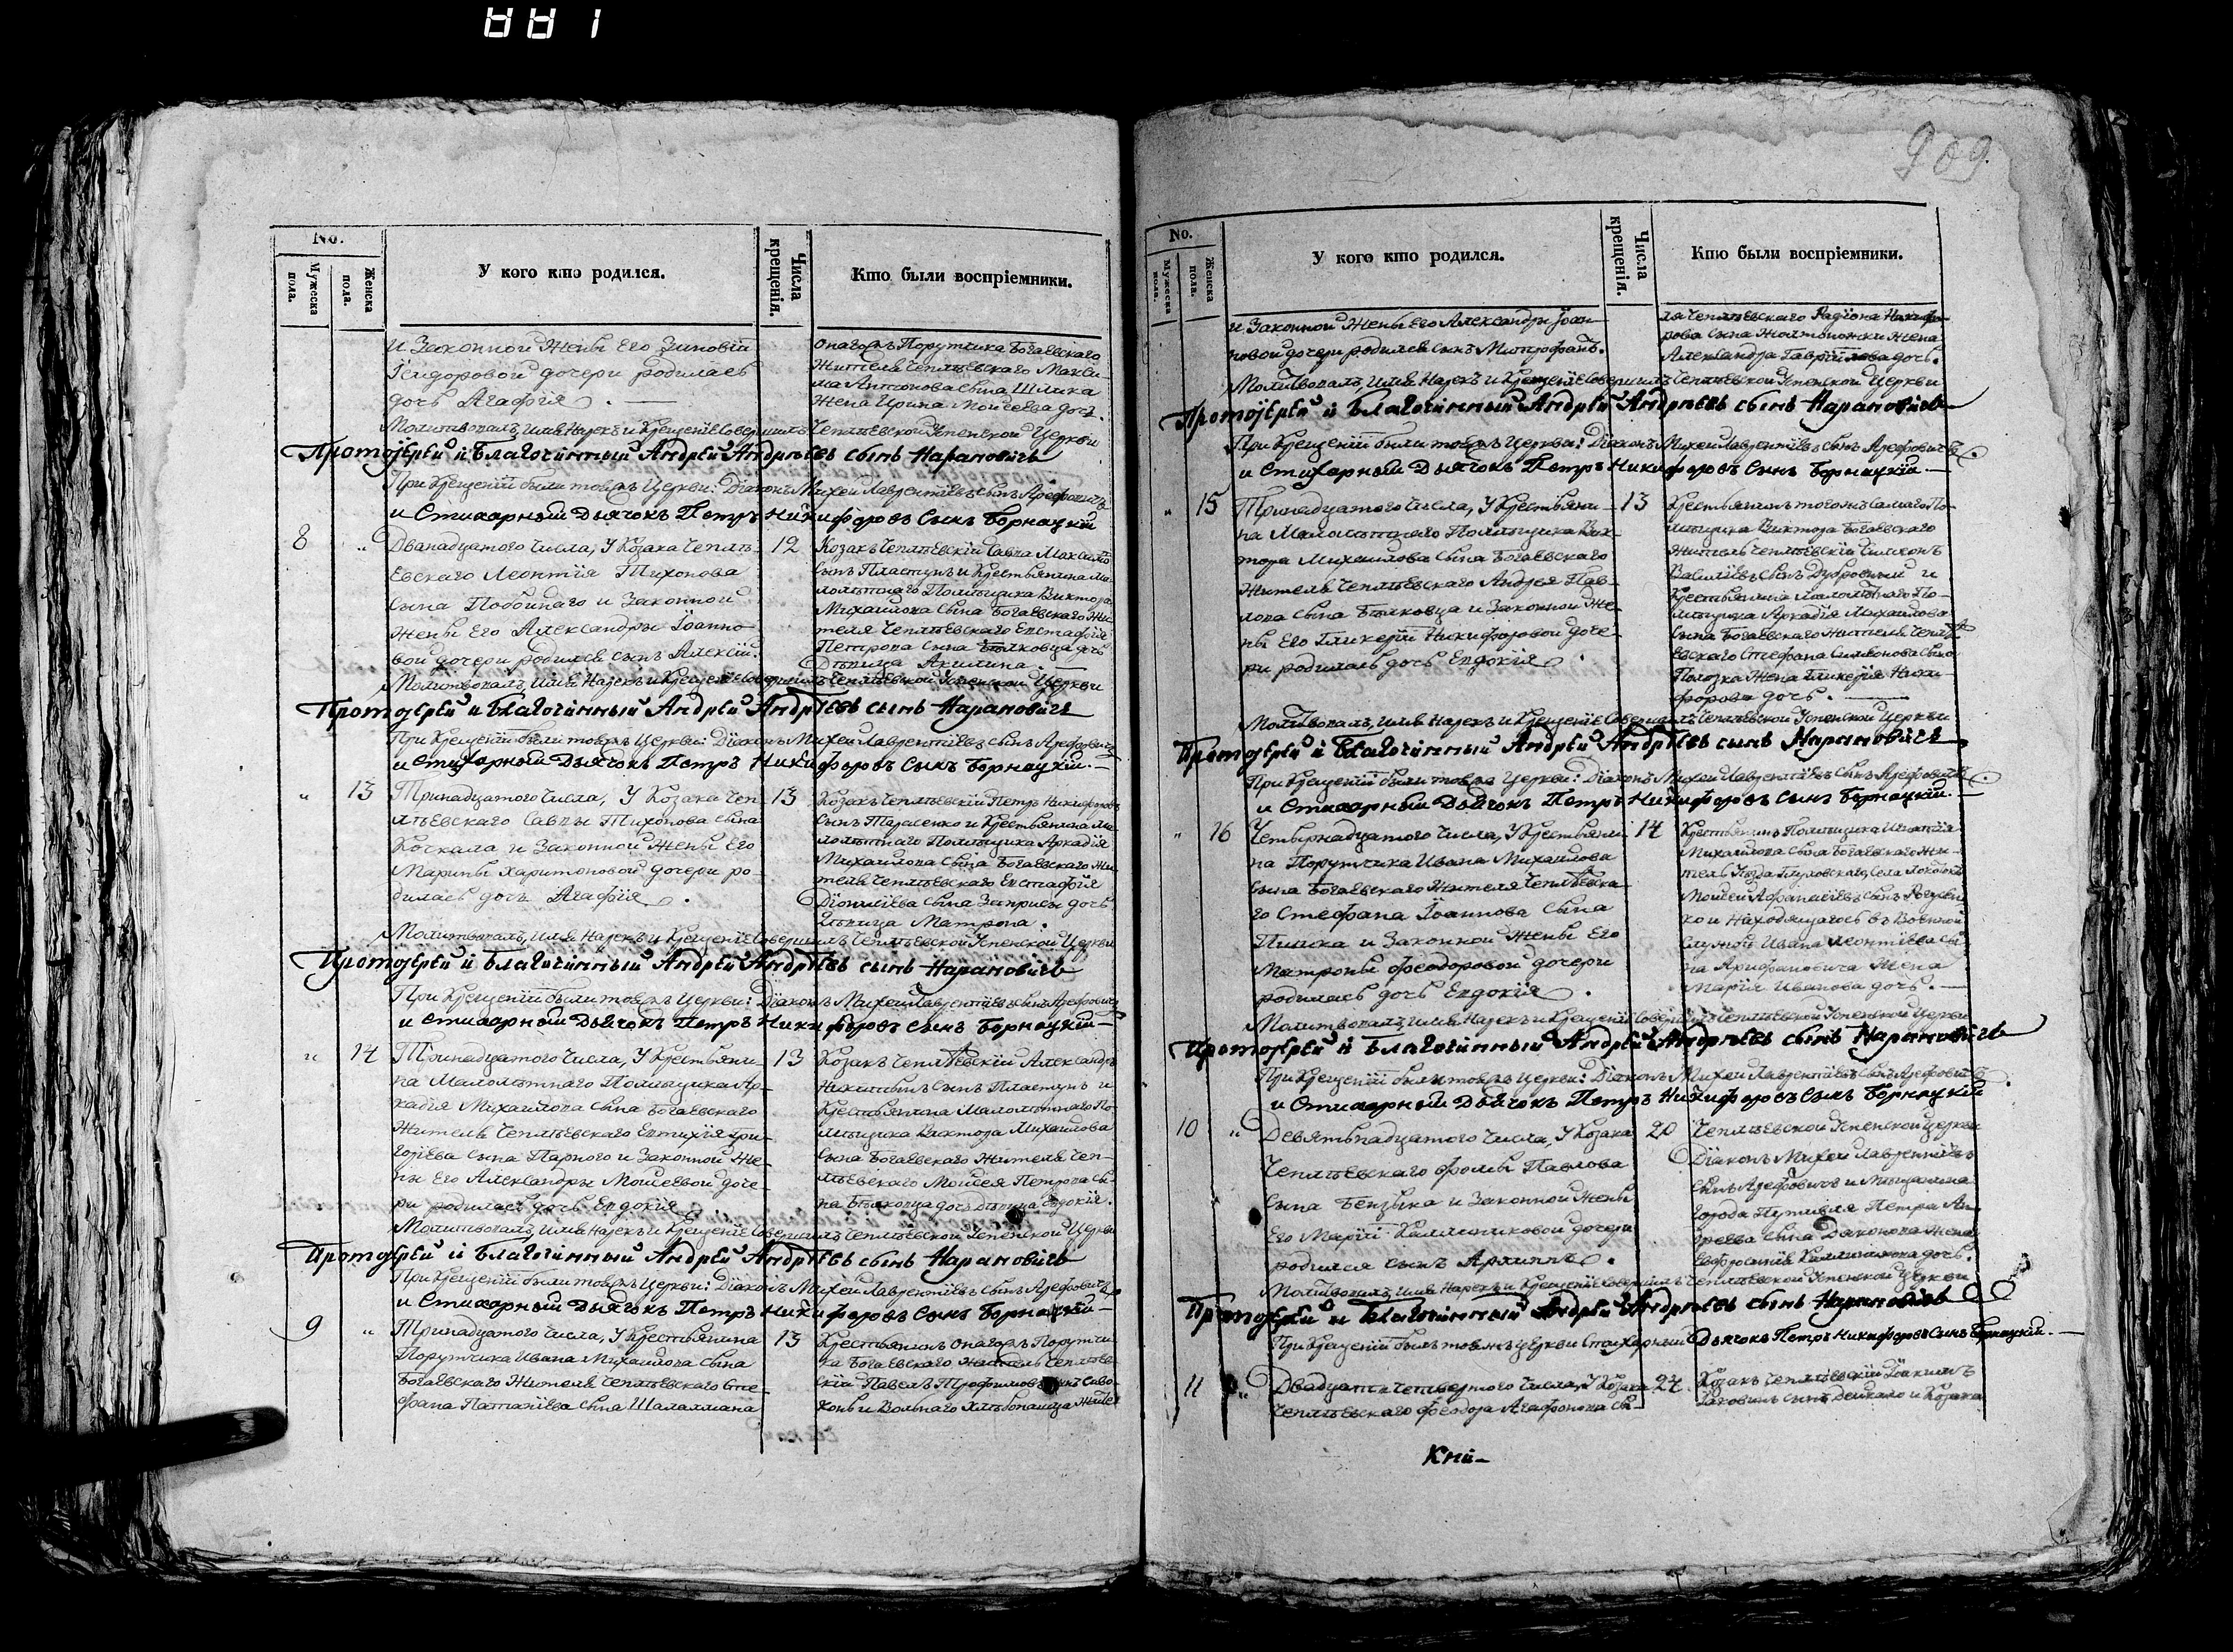 No.
Мужеска пола.
Женска пола.
У кого кто родился.
Числа крещенія.
Кто были воспріемники.
и Законной Жены Его Зиновіи
Ісидоровой дочери родилась
дочь Агафія.
онагожъ Порутчика Богаевскаго
Жителя Чеплѣевскаго Макси
ма Антонова сына Шлика
Жена Ирина Моисеева дочь.
Молитвовалъ, Имя Нарекъ и Крещеніе Совершилъ Чеплѣевской Успенской Церкви
Протоіерей и Благочинный Андрей Андрѣевъ сынъ Нарановичъ
При Крещеніи были тояжъ Церкви: Діаконъ Михей Лаврентіевъ сынъ Арефовичъ
и Стихарный Дьячокъ Петръ Никифоровъ Сынъ Борнацкій
8 " Дванадцатого Числа, У Козака Чеплѣ-
евскаго Леонтія Тихонова
Сына Побойнаго и Законной
Жены Его Александры Іоанно
вой дочери родился сынъ Алексій.
12
Козакъ Чеплѣевскій Савва Максимо
Сынъ Пластунъ и Крестьянина Ма
лолѣтнаго Помѣщика Виктора
Михаилова Сына Богаевскаго Жи
теля Чеплѣевскаго Евстафія
Петрова Сына Бѣлковца дочь
Дѣвица Акилина.
Молитвовалъ, Имя Нарекъ и Крещеніе Совершилъ Чеплѣевской Успенской Церкви
Протоіерей и Благочинный Андрей Андрѣевъ сынъ Нарановичъ
При Крещеніи были тояжъ Церкви: Діаконъ Михей Лаврентіевъ сынъ Арефовичъ
и Стихарный Дьячокъ Петръ Никифоровъ Сынъ Борнацкій.
" 13 Тринадцатого Числа, У Козака Чеп
лѣевскаго Саввы Тихонова Сына
Кочкала и Законной Жены Его
Марины Харитоновой дочери ро-
дилась дочь Агафія.
13
Козакъ Чеплѣевскій Петръ Никифоровъ
Сынъ Тарасенко и Крестьянина Ма
лолѣтнаго Помѣщика Аркадія
Михаилова Сына Богаевскаго Жи
теля Чеплѣевскаго Евстафія
Діонисіева Сына дочь
Дѣвица Матрона.
Молитвовалъ, Имя Нарекъ и Крещеніе Совершилъ Чеплѣевской Успенской Церкви
Протоіерей и Благочинный Андрей Андрѣевъ сынъ Нарановичъ
При Крещеніи были тояжъ Церкви: Діаконъ Михей Лаврентіевъ сынъ Арефовичъ
и Стихарный Дьячокъ Петръ Никифоровъ Сынъ Борнацкій
" 14 Тринадцатого Числа, У Крестьяни-
на Малолѣтнаго Помѣщика Ар-
кадія Михаилова Сына Богаевскаго
Жителя Чеплѣевскаго Евтихія Гри-
горіева Сына Парного и Законной Же-
ны Его Александры Моисеевой доче-
ри родилась дочь Евдокія.
13
Козакъ Чеплѣевскій Александръ
Никитинъ Сынъ Пластунъ и
Крестьянина Малолѣтнаго По-
мѣщика Виктора Михаилова
Сына Богаевскаго Жителя Чеп-
лѣевскаго Моисея Петрова Сы-
на Бѣлковца дочь Дѣвица Евдокія.
Молитвовалъ, Имя Нарекъ и Крещеніе Совершилъ Чеплѣевской Успенской Церкви
Протоіерей и Благочинный Андрей Андрѣевъ сынъ Нарановичъ
При Крещеніи были тояжъ Церкви: Діаконъ Михей Лаврентіевъ сынъ Арефовичъ
и Стихарный Дьячокъ Петръ Никифоровъ Сынъ Борнацкій
9 " Тринадцатого Числа, У Крестьянина
Порутчика Ивана Михаилова Сына
Богаевскаго Жителя Чеплѣевскаго Сте-
фана Сына Шалахмана
13
Крестьянинъ онагожъ Порутчи
ка Богаевскаго Житель Чеплѣев
скій Павелъ Трофимовъ сынъ
и Вольнаго Хлѣбопашца Жите
909
No.
Мужеска пола.
Женска пола.
У кого кто родился.
Числа крещенія.
Кто были воспріемники.
и Законной Жены Его Александры Іоан
новой дочери родился сынъ Митрофанъ.
ля Чеплѣевскаго Радіона Никифо
рова Сына Жена
Александра Гавріилова дочь.
Молитвовалъ, Имя Нарекъ и Крещеніе Совершилъ Чеплѣевской Успенской Церкви
Протоіерей и Благочинный Андрей Андрѣевъ сынъ Нарановичъ
При Крещеніи были тояжъ Церкви: Діаконъ Михей Лаврентіевъ сынъ Арефовичъ
и Стихарный Дьячокъ Петръ Никифоровъ Сынъ Борнацкій.
" 15 Тринадцатого Числа, У Крестьяни-
на Малолѣтнаго Помѣщика Вик-
тора Михаилова Сына Богаевскаго
Жителя Чеплѣевскаго Андрея Пав-
лова Сына Бѣлковца и Законной Же-
ны Его Гликеріи Никифоровой доче-
ри родилась дочь Евдокія.
13
Крестьянинъ тогожъ Самаго По-
мѣщика Виктора Богаевскаго
Житель Чеплѣевскій Симеонъ
Василіевъ Сынъ Дубровный и
Крестьянина Малолѣтнаго По-
мѣщика Аркадія Михаилова
Сына Богаевскаго Жителя Чеплѣ
евскаго Стефана Симеонова Сына
Жена Гликерія Ники-
форова дочь.
Молитвовалъ, Имя Нарекъ и Крещеніе Совершилъ Чеплѣевской Успенской Церкви
Протоіерей и Благочинный Андрей Андрѣевъ сынъ Нарановичъ
При Крещеніи были тояжъ Церкви: Діаконъ Михей Лаврентіевъ сынъ Арефовичъ
и Стихарный Дьячокъ Петръ Никифоровъ Сынъ Борнацкій.
" 16 Четырнадцатого Числа, У Крестьяни
на Порутчика Ивана Михаилова
Сына Богаевскаго Жителя Чеплѣевска
го Стефана Іоаннова Сына
и Законной Жены Его
Матроны Феодоровой дочери
родилась дочь Евдокія.
14
Крестьянинъ Помѣщика Игнатія
Михаилова Сына Богаевскаго Жи-
тель Уѣзда Глуховскаго, Села
Моисей Афанасіевъ Сынъ
ко и Находящагося въ Военной
Службѣ Ивана Леонтіева Сы
на Жена
Марія Иванова дочь.
Молитвовалъ, Имя Нарекъ и Крещеніе Совершилъ Чеплѣевской Успенской Церкви
Протоіерей и Благочинный Андрей Андрѣевъ сынъ Нарановичъ
При Крещеніи были тояжъ Церкви: Діаконъ Михей Лаврентіевъ Сынъ Арефовичъ
и Стихарный Дьячокъ Петръ Никифоровъ Сынъ Борнацкій
10 " Девятьнадцатого Числа, У Козака
Чеплѣевскаго Фомы Павлова
Сына Бензика и Законной Жены
Его Маріи Каллиниковой дочери
родился сынъ Архиппъ.
20
Чеплѣевской Успенской Церкви
Діаконъ Михей Лаврентіевъ
Сынъ Арефовичъ и Мѣщанина
города Путивля Петра Ан-
дреева Сына Дьяконова Жена
Евфросинія дочь.
Молитвовалъ, Имя Нарекъ и Крещеніе Совершилъ Чеплѣевской Успенской Церкви
Протоіерей и Благочинный Андрей Андрѣевъ сынъ Нарановичъ
При Крещеніи былъ тояжъ Церкви Стихарный Дьячокъ Петръ Никифоровъ Сынъ Борнацкій.
11 " Двадцать Четвертого Числа, У Козака
Чеплѣевскаго Феодора Агафонова Сы-
24
Козакъ Чеплѣевскій Іоакимъ
Іаковинъ Сынъ и Козака
Кни-